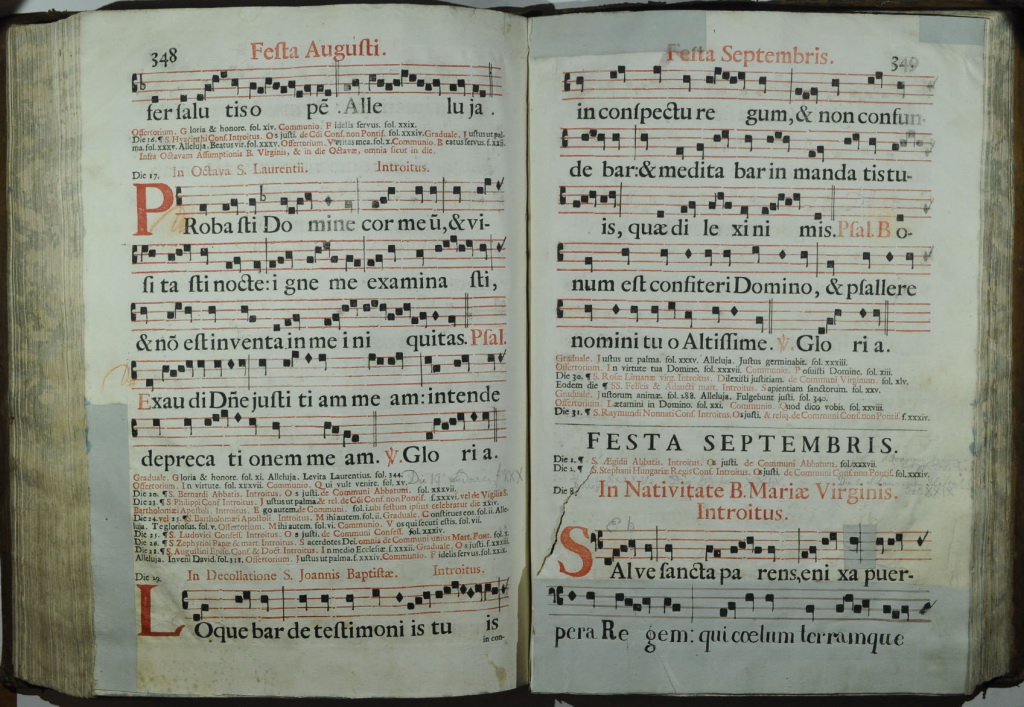 348
Festa Augusti.
fer salu tis o pẽ . Alle lu ja .
Offertorium. Gloria & honore. fol. xiv. Communio. Fidelis servus. fol. xxix.
Die 16. ¶ S. Hyacinthi Conf. Introitus. Os justi. de Cõi Conf. non Pontif. fol. xxxiv. Graduale. Justus ut pal-
ma. fol. xxxv. Alleluja. Beatus vir. fol. xxxv. Offertorium. Veritas mea. fol. x. Communio. Beatus servus. f. xxii.
Infra Octavam Assumptionis B. Virginis, & in die Octavæ, omnia sicut in die.
Die 17. In Octava S. Laurentii. Introitus.
PRoba sti Do mine cor me ũ, & vi-
si ta sti nocte: i gne me examina sti,
& nõ est inventa in me i ni quitas. Psal.
Exau di Dñe justi ti am me am: intende
depreca ti onem me am. ℣. Glo ri a.
Graduale. Gloria & honore. fol. xi. Alleluja. Levita Laurentius. fol. 344.
Offertorium. In virtute. fol. xxxvii. Communio. Qui vult venire. fol. xv.
Die 20. ¶ S. Bernardi Abbatis. Introitus. Os justi. de Communi Abbatum. fol. xxxvii.
Die 23. ¶ S. Philippi Conf. Introitus. Justus ut palma. & rel. de Cõi Conf. non Pontif. f. xxxvi. vel de Vigilia S.
Bartholomæi Apostoli. Introitus. Ego autem. de Communi. fol.
Die 24. vel 25. ¶ S. Bartholomæi Apostoli. Introitus. Mihi autem. fol. ii. Graduale. Constitues eos. fol. ii. Alle-
luja. Te gloriosus. fol. v. Offertorium. Mihi autem. fol. vi. Communio. Vos qui secuti estis. fol. vii.
Die 25. ¶ S. Ludovici Confess. Introitus. Os justi. de Communi Confess. fol. xxxiv.
Die 26. ¶ S. Zephyrini Papæ & mart. Introitus. Sacerdotes Dei. omnia de Communi unius Mart. Pont. fol. x.
Die 28. ¶ S. Augustini Episc. Conf. & Doct. Introitus. In medio Ecclesiæ. f. xxxii. Graduale. Os justi. f. xxxii.
Alleluja. Inveni David. fol. 312. Offertorium. Justus ut palma. f. xxxiv. Communio. Fidelis servus. fol. xxix.
Die 29. In Decollatione S. Joannis Baptistæ. Introitus.
LOque bar de testimoni is tu is
in con-
349
Festa Septembris.
in conspectu re gum, & non confun-
de bar: & medita bar in manda tis tu-
is, quæ di le xi ni mis. Psal. Bo-
num est confiteri Domino, & psallere
nomini tu o Altissime. ℣. Glo ri a.
Graduale. Justus ut palma. fol. xxxv. Alleluja. Justus germinabit. fol. xxxiii.
Offertorium. In virtute tua Domine. fol. xxxvii. Communio. Posuisti Domine. fol. xiii.
Die 30. ¶ S. Rosæ Limanæ virg. Introitus. Dilexisti justitiam. de Communi Virginum. fol. xlv.
Eodem die ¶ SS. Felicis & Adaucti mart. Introitus. Sapientiam sanctorum. fol. xxv.
Graduale. Justorum animæ. fol. 288. Alleluja. Fulgebunt justi. fol. 340.
Offertorium. Lætamini in Domino. fol. xxi. Communio. Quod dico vobis. fol. xxviii.
Die 31. ¶ S. Raymundi Nonnati Conf. Introitus. Os justi. & reliq. de Communi Conf. non Pontif. f. xxxiv.
FESTA SEPTEMBRIS.
Die 1. ¶ S. Ægidii Abbatis. Introitus. Os justi. de Communi Abbatum. fol. xxxvii.
Die 2. ¶ S. Stephani Hungariæ Regis Conf. Introitus. Os justi. de Communi Conf. non Pontif. fol. xxxiv.
Die 8. In Nativitate B. Mariæ Virginis.
Introitus.
SAlve sancta pa rens, eni xa puer-
pera Re gem: qui cœlum terramque